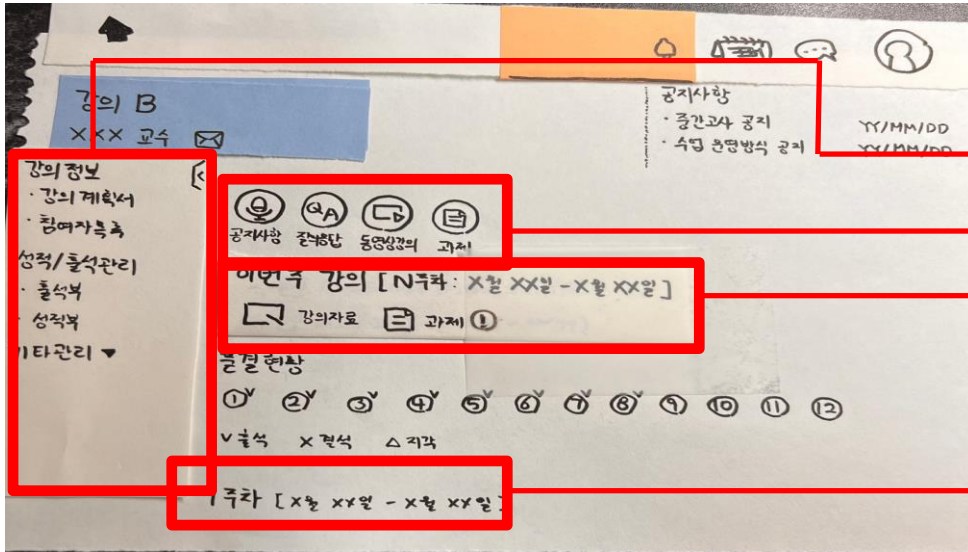 강의 B
XXX 교수
공지사항
· 중간고사 공지 YY/MM/DD
· 수업 운영방식 공지 YY/MM/DD
강의 정보
· 강의 계획서
· 참여자목록
성적/출석관리
· 출석부
· 성적부
기타관리 ▼
QA
공지사항 질의응답 동영상강의 과제
이번주 강의 [N주차: X월 XX일 - X월 XX일]
강의자료 과제 !
출결현황
① ② ③ ④ ⑤ ⑥ ⑦ ⑧ ⑨ ⑩ ⑪ ⑫
v 출석 x 결석 △ 지각
1주차 [X월 XX일 - X월 XX일]